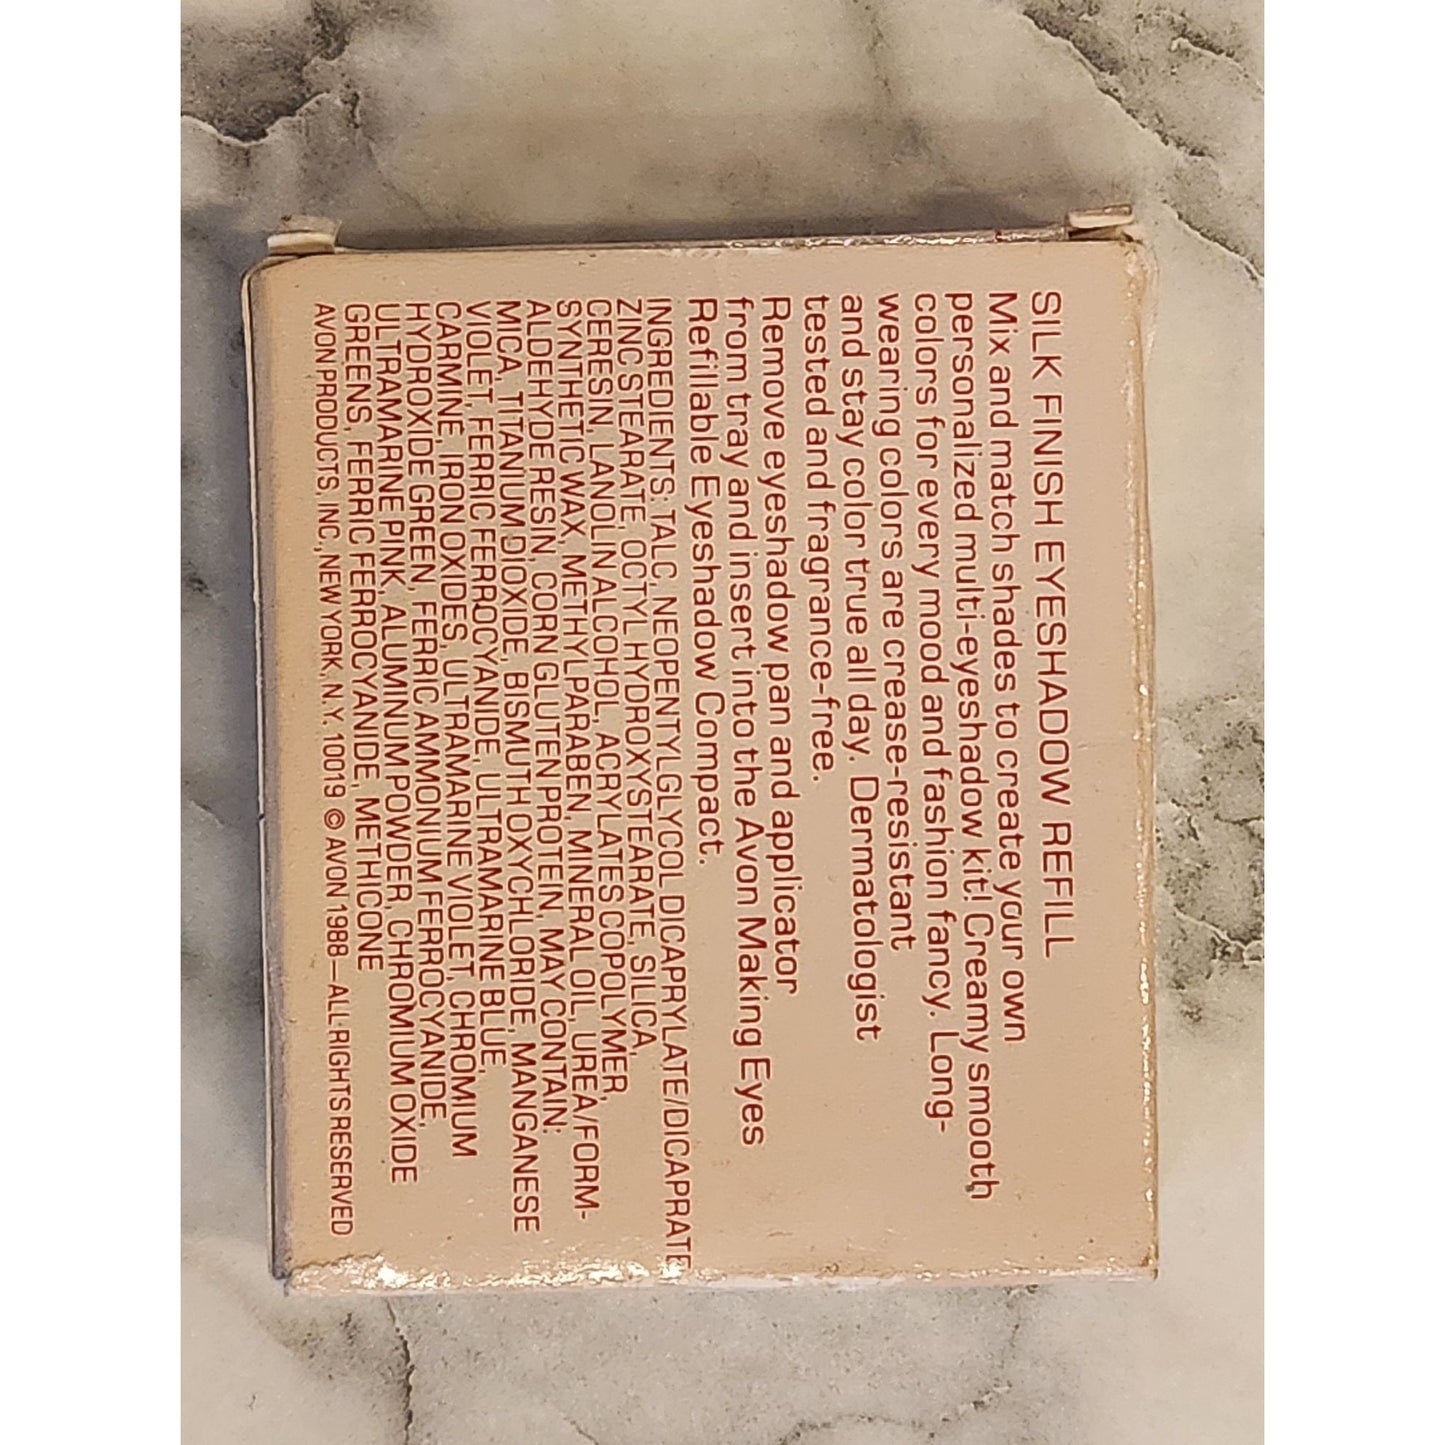 SILK FINISH EYESHADOW REFILL
Mix and match shades to create your own
personalized multi-eyeshadow kit! Creamy smooth
colors for every mood and fashion fancy. Long-
wearing colors are crease-resistant
and stay color true all day. Dermatologist
tested and fragrance-free.
Remove eyeshadow pan and applicator
from tray and insert into the Avon Making Eyes
Refillable Eyeshadow Compact.
INGREDIENTS: TALC, NEOPENTYLGLYCOL DICAPRYLATE/DICAPRATE
ZINC STEARATE, OCTYL HYDROXYSTEARATE, SILICA,
CERESIN, LANOLIN ALCOHOL, ACRYLATES COPOLYMER,
SYNTHETIC WAX, METHYLPARABEN, MINERAL OIL, UREA/FORM-
ALDEHYDE RESIN, CORN GLUTEN PROTEIN, MAY CONTAIN:
MICA, TITANIUM DIOXIDE, BISMUTH OXYCHLORIDE, MANGANESE
VIOLET, FERRIC FERROCYANIDE, ULTRAMARINE BLUE,
CARMINE, IRON OXIDES, ULTRAMARINE VIOLET, CHROMIUM
HYDROXIDE GREEN, FERRIC AMMONIUM FERROCYANIDE,
ULTRAMARINE PINK, ALUMINUM POWDER, CHROMIUM OXIDE
GREENS, FERRIC FERROCYANIDE, METHICONE
AVON PRODUCTS, INC., NEW YORK, N.Y. 10019 © AVON 1988—ALL RIGHTS RESERVED